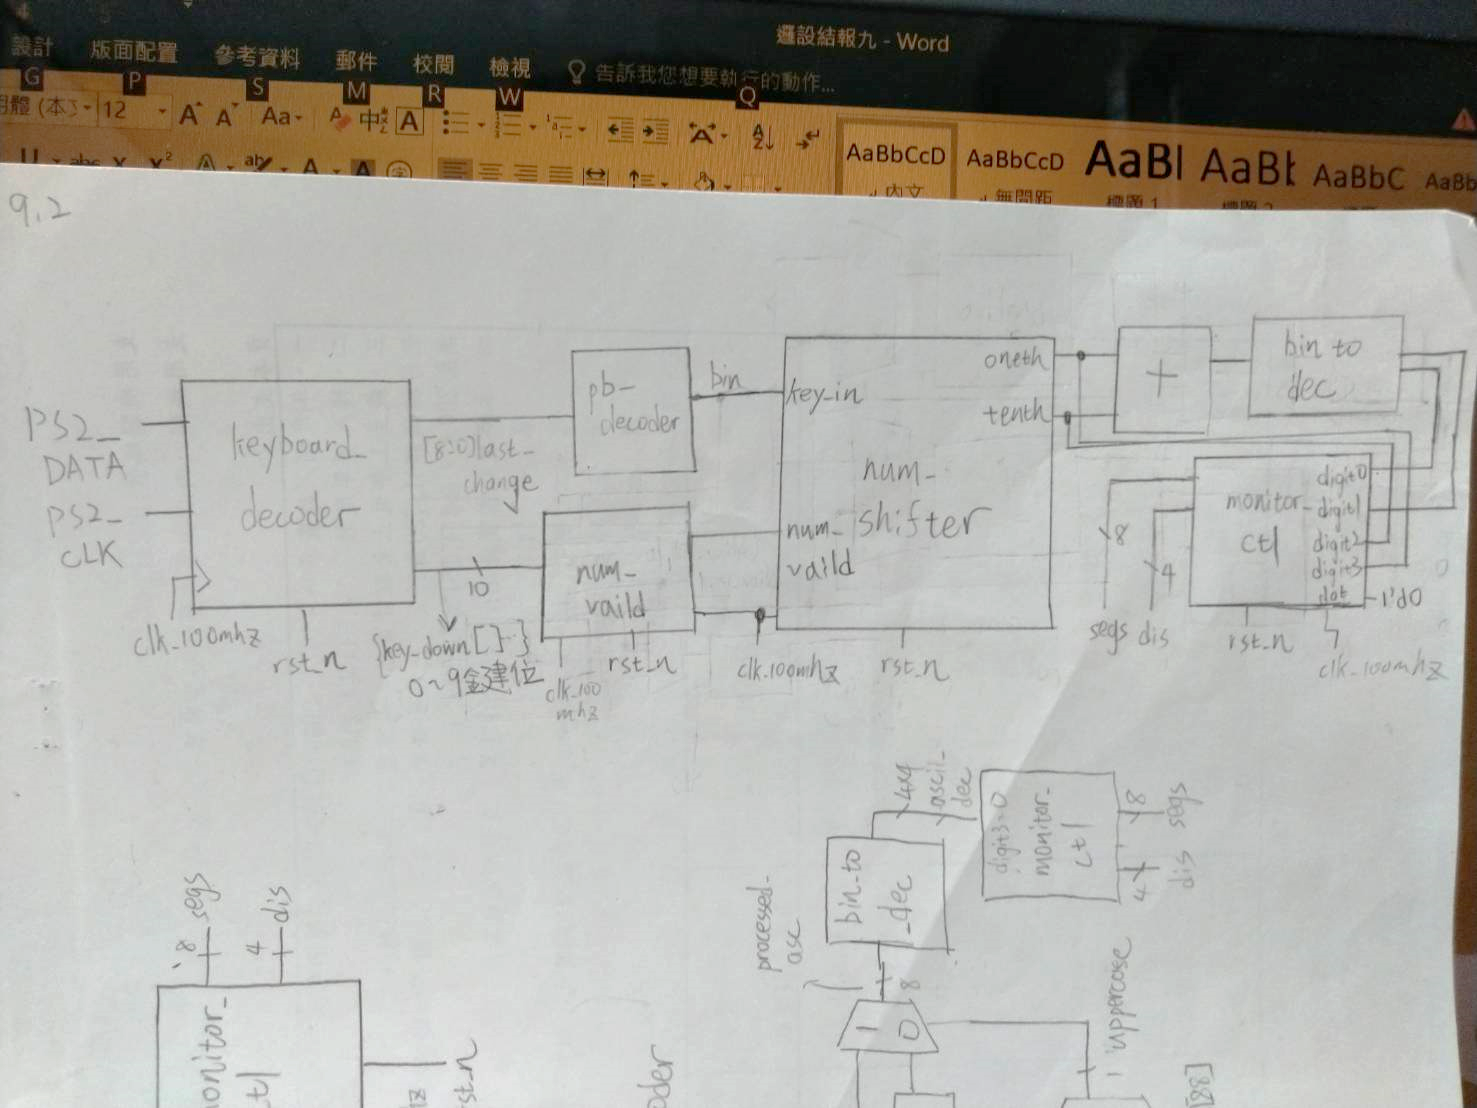 邏設結報九 - Word
設計 版面配置 參考資料 郵件 校閱 檢視 告訴我您想要執行的動作...
G P S M R W Q
12 A A Aa A
AaBbCcD AaBbCcD AaBl AaBb AaBbC AaBb
內文 無間距 標題 1
9.2
PS2_
DATA
PS2_
CLK
keyboard_
decoder
clk_100mhz
rst_n
[8:0]last_
change
10
{key_down[]...}
0~9鍵位
pb_
decoder
bin
num_
vaild
clk_100
mhz
rst_n
key_in
num_
vaild
num_
shifter
oneth
tenth
clk_100mhz
rst_n
+
bin to
dec
monitor_
ctl
digit0
digit1
digit2
digit3
dot
1'd0
8
4
segs dis
rst_n
clk_100mhz
8 segs
4 dis
monitor_
ctl
rst_n
processed_
asc
bin_to
_dec
4x4
ascii_
dec
digit3~0
monitor_
ctl
8 segs
4 dis
8
1 0
1 uppercase